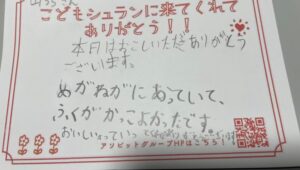 山うちさん
こどもシュランに来てくれて
ありがとう!!
本日はおこしいただきありがとう
ございます。
めがねがにあっていて、
ふくがかっこよかったです。
おいしいっていって
アソビットグループHPはこちら!